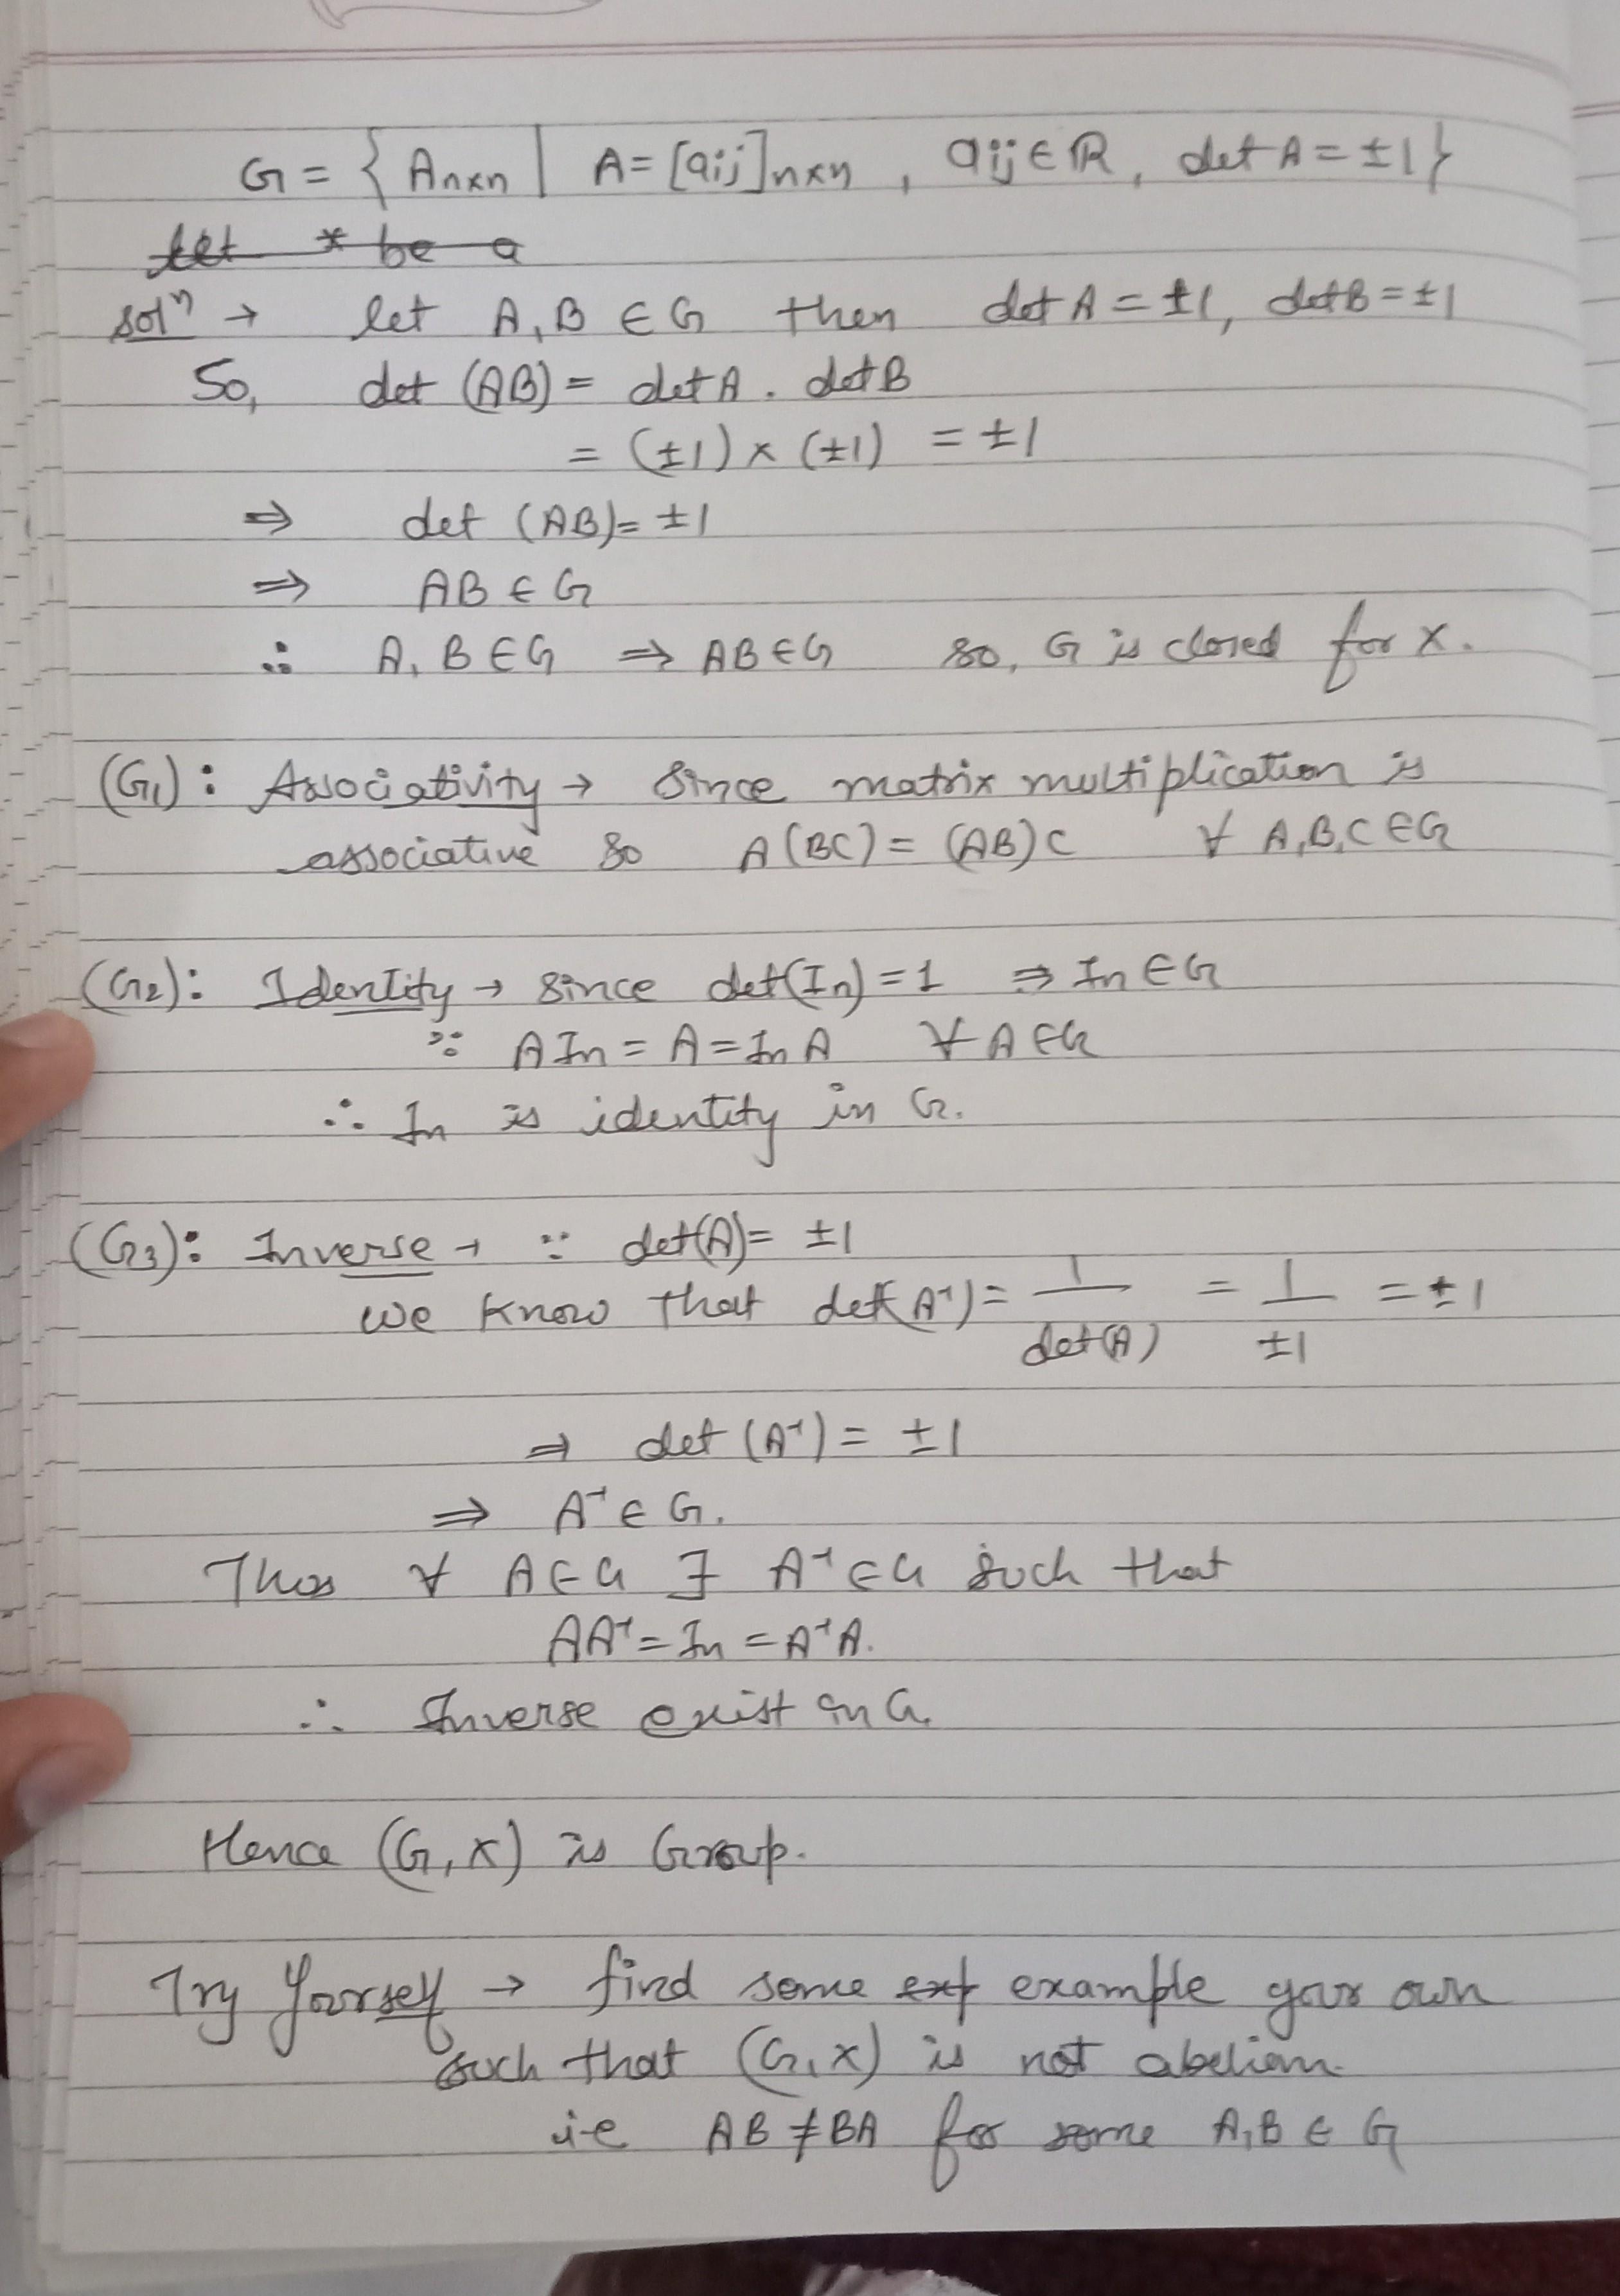 G = { Anxn | A = [aij]nxn , aij ∈ ℝ, det A = ±1}
let * be a
solⁿ → let A, B ∈ G then det A = ±1, det B = ±1
So, det (AB) = det A . det B
= (±1) × (±1) = ±1
⇒ det (AB) = ±1
⇒ AB ∈ G
∴ A, B ∈ G ⇒ AB ∈ G so, G is closed for ×.
(G₁): Associativity → Since matrix multiplication is
associative so A(BC) = (AB)C ∀ A,B,C ∈ G
(G₂): Identity → Since det(In) = 1 ⇒ In ∈ G
∵ AIn = A = InA ∀ A ∈ G
∴ In is identity in G.
(G₃): Inverse → ∵ det(A) = ±1
we know that det(A⁻¹) = 1/det(A) = 1/±1 = ±1
⇒ det (A⁻¹) = ±1
⇒ A⁻¹ ∈ G.
Thus ∀ A ∈ G ∃ A⁻¹ ∈ G such that
AA⁻¹ = In = A⁻¹A.
∴ Inverse exist in G.
Hence (G, ×) is Group.
Try Yourself → find some exf example your own
such that (G, ×) is not abelian.
i.e AB ≠ BA for some A, B ∈ G